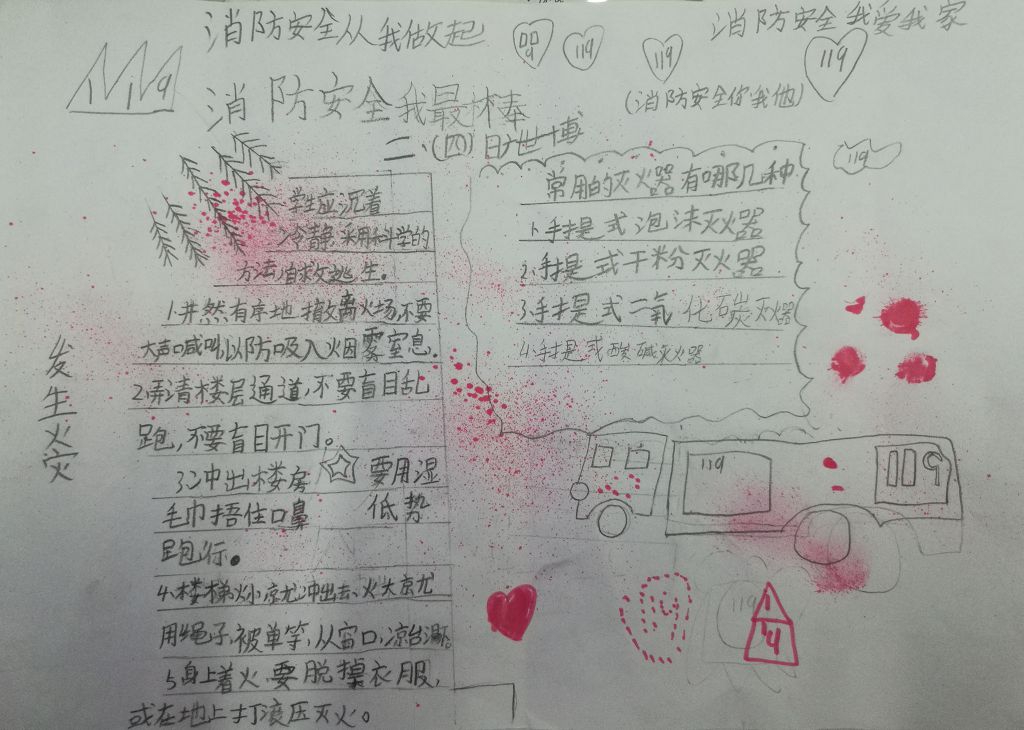 消防安全从我做起
消防安全我爱我家
119
119
119
119
119
消防安全我最棒
(消防安全你我他)
二、(四)
119
学生应沉着
冷静采用科学的
方法自救逃生。
1.井然有序地撤离火场,不要
大声喊叫,以防吸入烟雾窒息。
2.弄清楼层通道,不要盲目乱
跑,不要盲目开门。
3冲出楼房 要用湿
毛巾捂住口鼻 低势
跑行。
4、楼梯火小就冲出去、火大就
用绳子,被单等,从窗口,凉台
5身上着火,要脱掉衣服,
或在地上打滚压灭火。
发生火灾
常用的灭火器有哪几种
1、手提式泡沫灭火器
2、手提式干粉灭火器
3.手提式二氧化碳灭火器
4.手提式酸碱灭火器
119
119
119
119